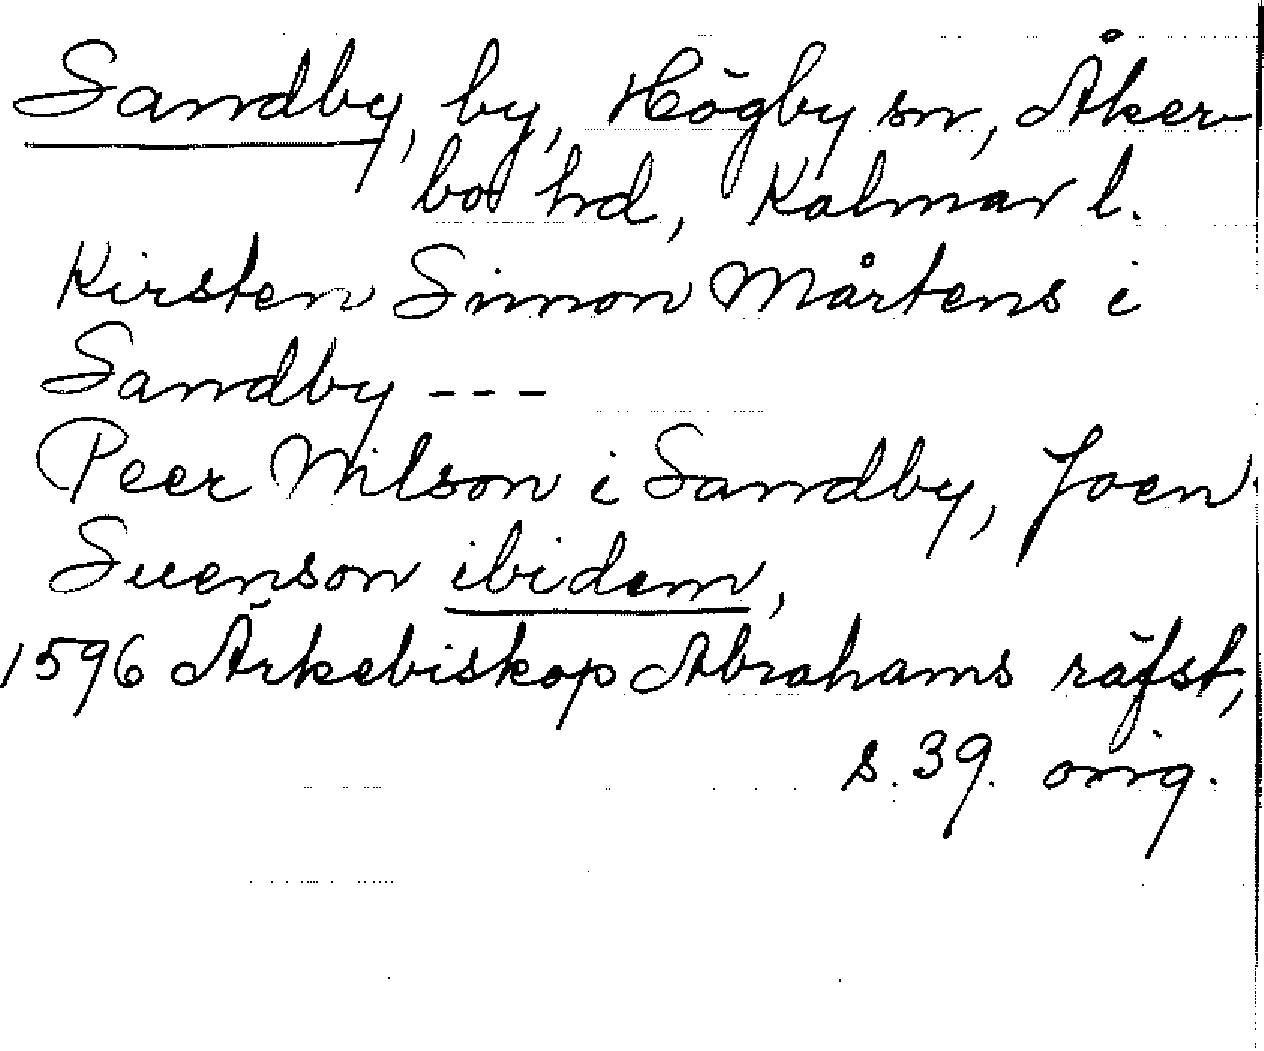 Sandby, by, Högby sn, Åker-
bo hd, Kalmar l.
Kirsten Simon Mårtens i
Sandby ---
Peer Nilson i Sandby, Joen
Suenson ibidem,
1596 Ärkebiskop Abrahams räfst,
s. 39. orig.